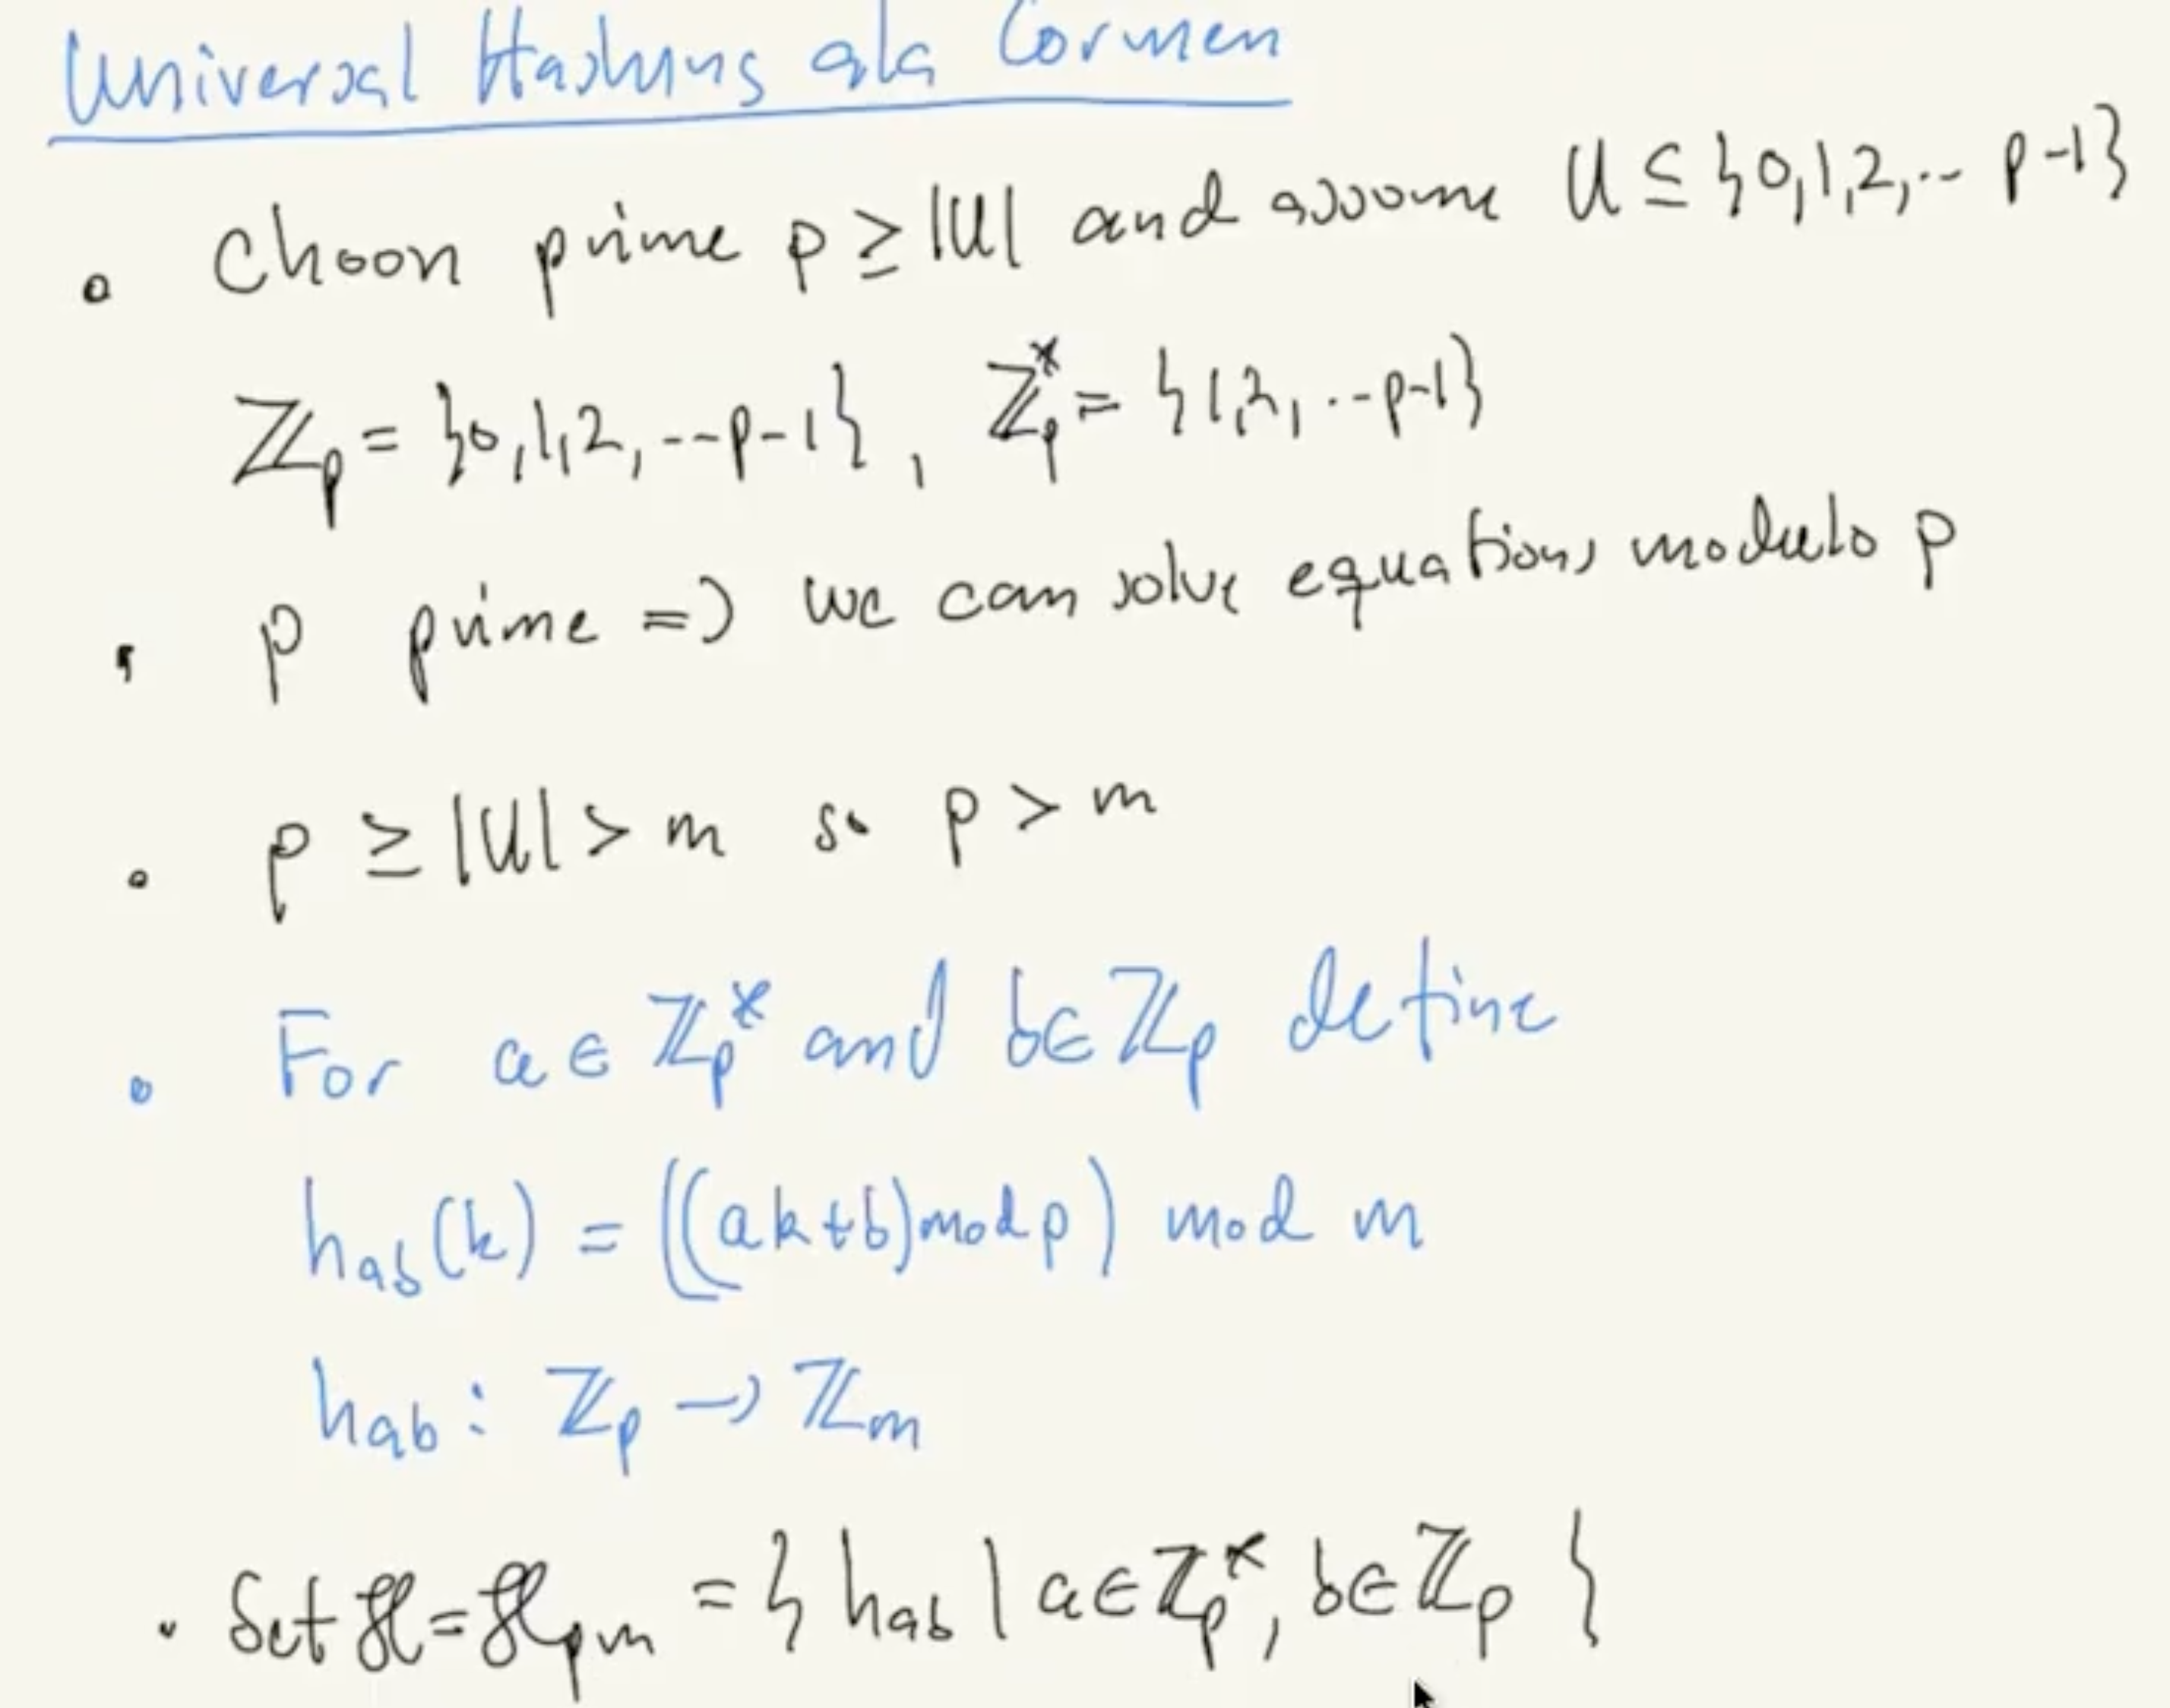 Universal Hashing ala Cormen
• Choose prime p ≥ |U| and assume U ⊆ {0,1,2,-- p-1}
ℤp = {0,1,2,---p-1}, ℤp* = {1,2,--p-1}
• p prime => we can solve equations modulo p
• p ≥ |U| > m so p > m
• For a ∈ ℤp* and b ∈ ℤp define
hab(k) = ((ak+b)mod p) mod m
hab : ℤp → ℤm
• Set ℋ = ℋpm = {hab | a∈ℤp*, b∈ℤp }